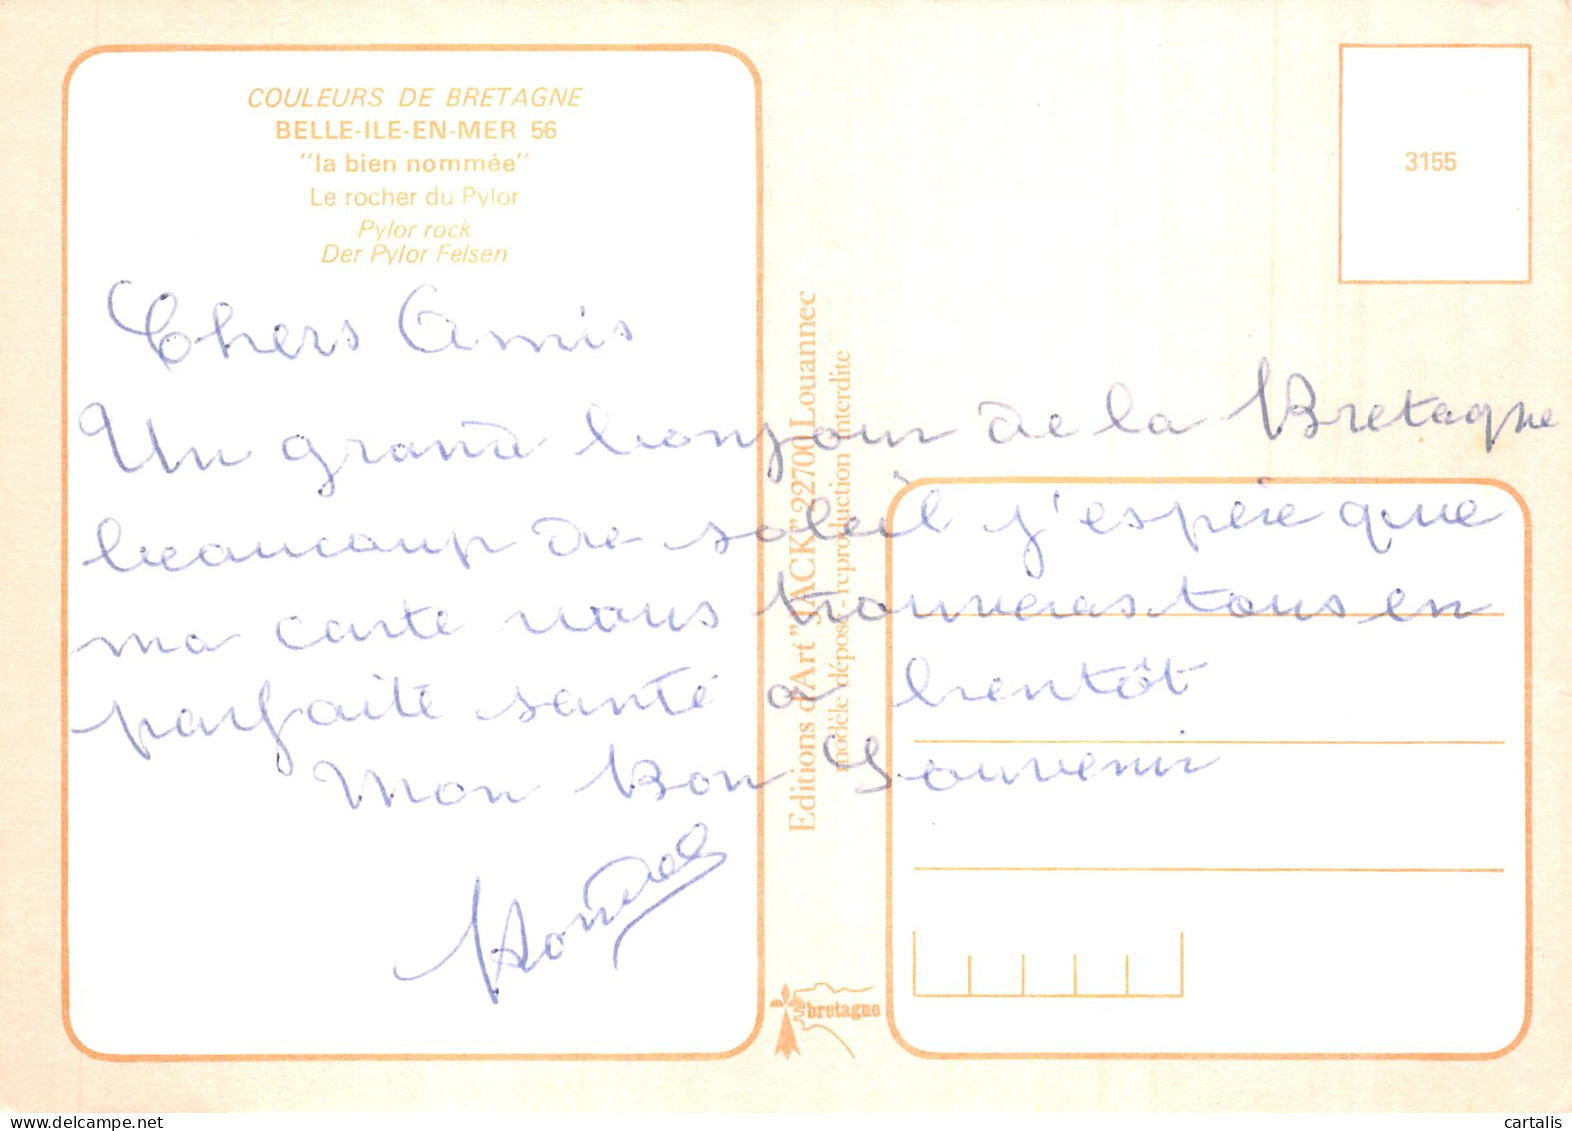 COULEURS DE BRETAGNE
BELLE-ILE-EN-MER 56
"la bien nommée"
Le rocher du Pylor
Pylor rock
Der Pylor Felsen
3155
Chers Amis
Un grand bonjour de la Bretagne
beaucoup de soleil j'espère que
ma carte vous trouveras tous en
parfaite santé a bientôt
Mon Bon Souvenir
Editions d'Art "JACK" 22700 Louannec
modèle déposé - reproduction interdite
bretagne
www.delcampe.net
cartalis